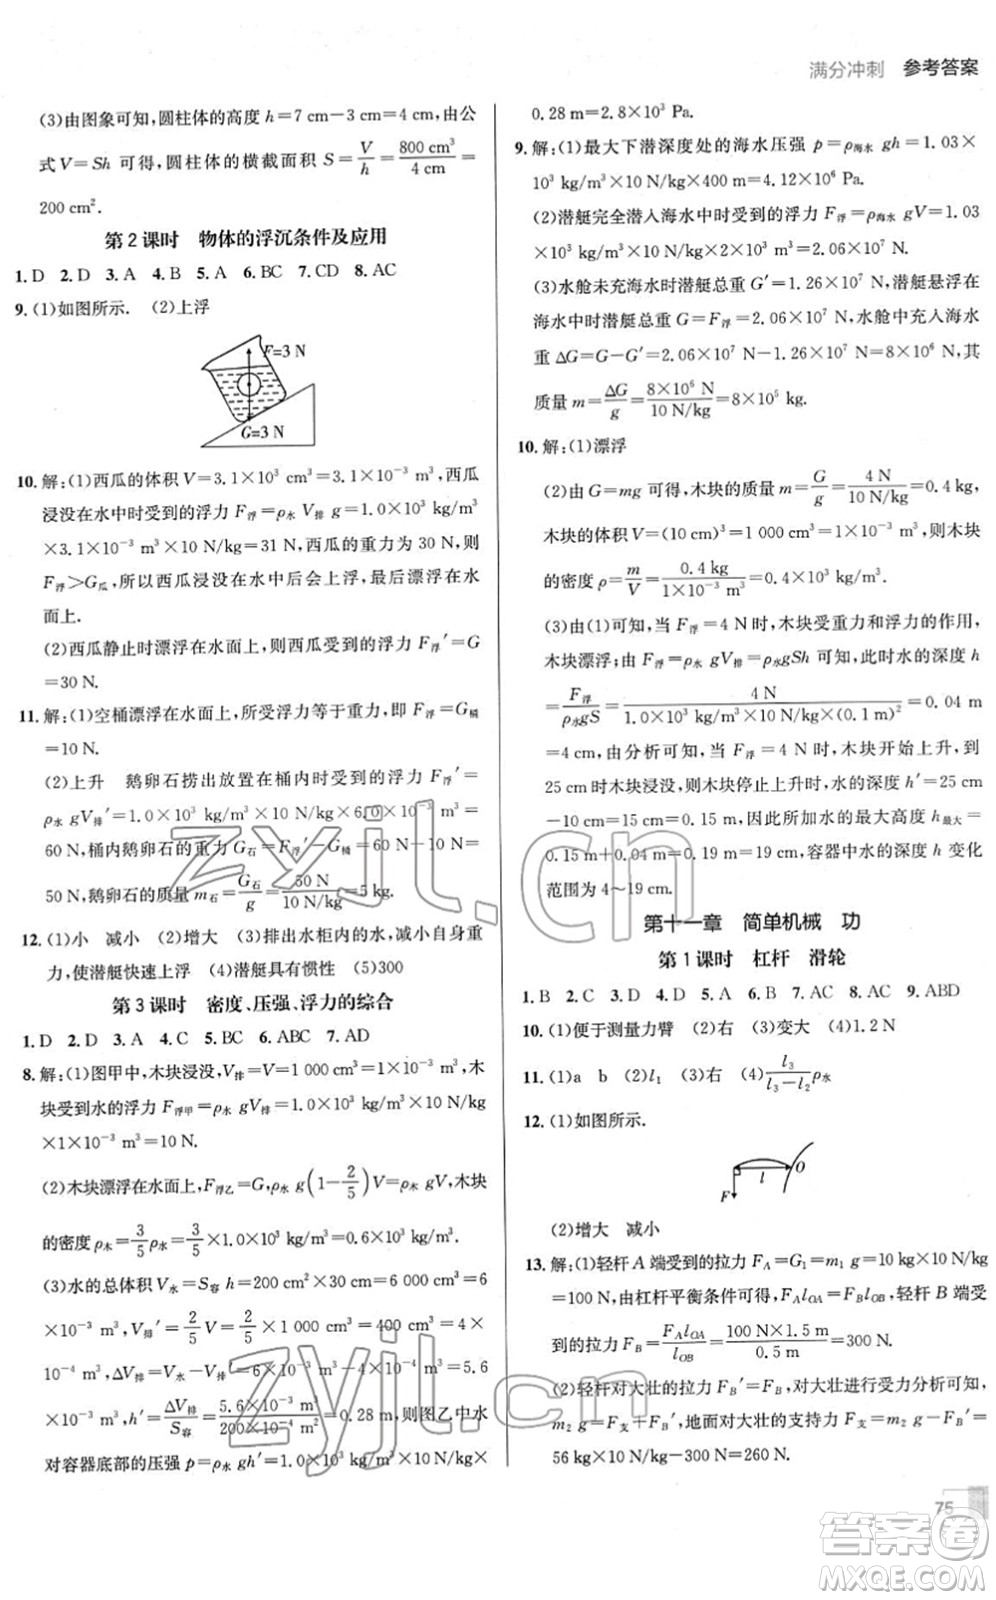 满分冲刺 参考答案
(3)由图象可知,圆柱体的高度 h=7 cm-3 cm=4 cm,由公
式 V=Sh 可得,圆柱体的横截面积 S=V/h=800 cm³/4 cm=
200 cm².
第 2 课时 物体的浮沉条件及应用
1. D 2. D 3. A 4. B 5. A 6. BC 7. CD 8. AC
9. (1)如图所示. (2)上浮
F=3 N
G=3 N
10. 解:(1)西瓜的体积 V=3.1×10³ cm³=3.1×10⁻³ m³,西瓜
浸没在水中时受到的浮力 F浮=ρ水 V排 g=1.0×10³ kg/m³
×3.1×10⁻³ m³×10 N/kg=31 N,西瓜的重力为 30 N,则
F浮>G瓜,所以西瓜浸没在水中会上浮,最后漂浮在水
面上.
(2)西瓜静止时漂浮在水面上,所以西瓜受到的浮力 F浮′=G
=30 N.
11. 解:(1)空桶漂浮在水面上,所受浮力等于重力,即 F浮=G桶
=10 N.
(2)上升 鹅卵石捞出放置在桶内时受到的浮力 F浮′=
ρ水 gV排′=1.0×10³ kg/m³×10 N/kg×6.0×10⁻³ m³=
60 N,桶内鹅卵石的重力 G石=F浮′-G桶=60 N-10 N=
50 N,鹅卵石的质量 m石=G石/g=50 N/10 N/kg=5 kg.
12. (1)小 减小 (2)增大 (3)排出水柜内的水,减小自身重
力,使潜艇快速上浮 (4)潜艇具有惯性 (5)300
第 3 课时 密度、压强、浮力的综合
1. D 2. D 3. AC 4. C 5. BC 6. ABC 7. AD
8. 解:(1)图甲中,木块浸没,V排=V=1 000 cm³=1×10⁻³ m³,木
块受到水的浮力 F浮甲=ρ水 gV排=1.0×10³ kg/m³×10 N/kg
×1×10⁻³ m³=10 N.
(2)木块漂浮在水面上,F浮乙=G,ρ水 g(1-2/5)V=ρ木 gV,木块
的密度 ρ木=3/5ρ水=3/5×1.0×10³ kg/m³=0.6×10³ kg/m³.
(3)水的总体积 V水=S容 h=200 cm²×30 cm=6 000 cm³=6
×10⁻³ m³,V排′=2/5V=2/5×1 000 cm³=400 cm³=4×
10⁻⁴ m³,ΔV排=V水-V排′=6×10⁻³ m³-4×10⁻⁴ m³=5.6
×10⁻³ m³,h′=ΔV排/S容=5.6×10⁻³ m³/200×10⁻⁴ m²=0.28 m,则图乙中水
对容器底部的压强 p=ρ水 gh′=1.0×10³ kg/m³×10 N/kg×
0.28 m=2.8×10³ Pa.
9. 解:(1)最大下潜深度处的海水压强 p=ρ海水 gh=1.03×
10³ kg/m³×10 N/kg×400 m=4.12×10⁶ Pa.
(2)潜艇完全潜入海水中时受到的浮力 F浮=ρ海水 gV=1.03
×10³ kg/m³×10 N/kg×2×10³ m³=2.06×10⁷ N.
(3)水舱未充海水时潜艇总重 G′=1.26×10⁷ N,潜艇悬浮在
海水中时潜艇总重 G=F浮=2.06×10⁷ N,水舱中充入海水
重 ΔG=G-G′=2.06×10⁷ N-1.26×10⁷ N=8×10⁶ N,其
质量 m=ΔG/g=8×10⁶ N/10 N/kg=8×10⁵ kg.
10. 解:(1)漂浮
(2)由 G=mg 可得,木块的质量 m=G/g=4 N/10 N/kg=0.4 kg,
木块的体积 V=(10 cm)³=1 000 cm³=1×10⁻³ m³,则木块
的密度 ρ=m/V=0.4 kg/1×10⁻³ m³=0.4×10³ kg/m³.
(3)由(1)可知,当 F浮=4 N 时,木块受重力和浮力的作用,
木块漂浮;由 F浮=ρ水 gV排=ρ水gSh 可知,此时水的深度 h
=F浮/ρ水gS=4 N/1.0×10³ kg/m³×10 N/kg×(0.1 m)²=0.04 m
=4 cm,由分析可知,当 F浮=4 N 时,木块开始上升,到
25 cm时木块浸没,则木块停止上升时,水的深度 h′=25 cm
-10 cm=15 cm=0.15 m,因此所加水的最大高度 h最大=
0.15 m+0.04 m=0.19 m=19 cm,容器中水的深度 h 变化
范围为 4~19 cm.
第十一章 简单机械 功
第 1 课时 杠杆 滑轮
1. B 2. C 3. A 4. D 5. A 6. B 7. AC 8. AC 9. ABD
10. (1)便于测量力臂 (2)右 (3)变大 (4)1.2 N
11. (1)a b (2)l₁ (3)右 (4)l₃/l₃-l₂ρ水
12. (1)如图所示.
F l O
(2)增大 减小
13. 解:(1)轻杆 A 端受到的拉力 F_A=G₁=m₁ g=10 kg×10 N/kg
=100 N,由杠杆平衡条件可得,F_A l_OA=F_B l_OB,轻杆 B 端受
到的拉力 F_B=F_A l_OA/l_OB=100 N×1.5 m/0.5 m=300 N.
(2)轻杆对大壮的拉力 F_B′=F_B,对大壮进行受力分析可知,
m₂ g=F支+F_B′,地面对大壮的支持力 F支=m₂ g-F_B′=
56 kg×10 N/kg-300 N=260 N.
75
zyjl.cn
zyjl.cn
答案圈